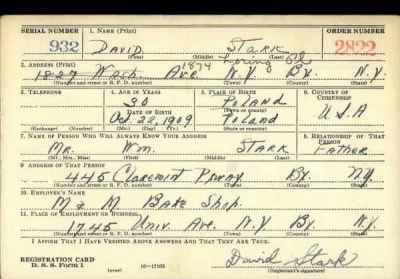 SERIAL NUMBER 1. NAME (Print) ORDER NUMBER
932 DAVID STARK 2822
(First) (Middle) (Last)
2. ADDRESS (Print) 1874 Loring Pl
1827 Wash. Ave. N.Y. Bx. N.Y.
(Number and street or R. F. D. number) (Town) (County) (State)
3. TELEPHONE 4. AGE IN YEARS 5. PLACE OF BIRTH 6. COUNTRY OF CITIZENSHIP
30 POLAND
DATE OF BIRTH (Town or county)
Oct. 22, 1909 Poland U.S.A
(Exchange) (Number) (Mo.) (Day) (Yr.) (State or country)
7. NAME OF PERSON WHO WILL ALWAYS KNOW YOUR ADDRESS 8. RELATIONSHIP OF THAT PERSON
Mr. Wm. STARK FATHER
(Mr., Mrs., Miss) (First) (Middle) (Last)
9. ADDRESS OF THAT PERSON
445 Claremont Pkway Bx. NY.
(Number and street or R. F. D. number) (Town) (County) (State)
10. EMPLOYER'S NAME
M & M Bake Shop.
11. PLACE OF EMPLOYMENT OR BUSINESS
1745 Univ. Ave. N.Y Bx. N.Y.
(Number and street or R. F. D. number) (Town) (County) (State)
I AFFIRM THAT I HAVE VERIFIED ABOVE ANSWERS AND THAT THEY ARE TRUE.
REGISTRATION CARD
D. S. S. Form 1 16—17105 David Stark
(Registrant's signature)